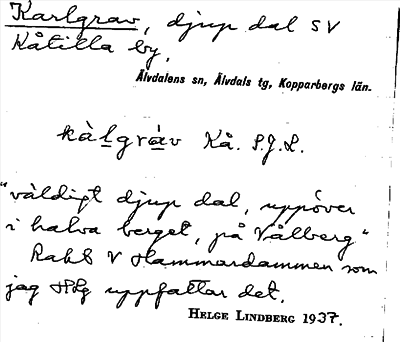 Karlgrav, djup dal SV
Kåtilla by,
Älvdalens sn, Älvdals tg, Kopparbergs län.
kàlgràv Kå. S.J.L.
"väldigt djup dal, uppöver
i halva berget, på Vålberg"
Rakt V Hammardammen som
jag HLg uppfattar det.
HELGE LINDBERG 1937.